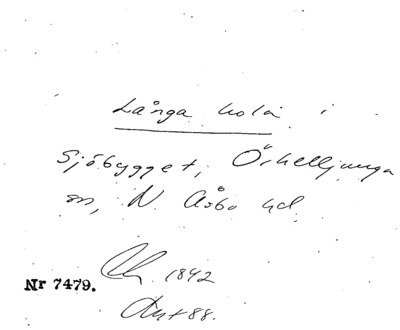 Långa hola i
Sjöbygget, Örkelljunga
sn, N. Åsbo hd.
1842
Nr 7479.
88.